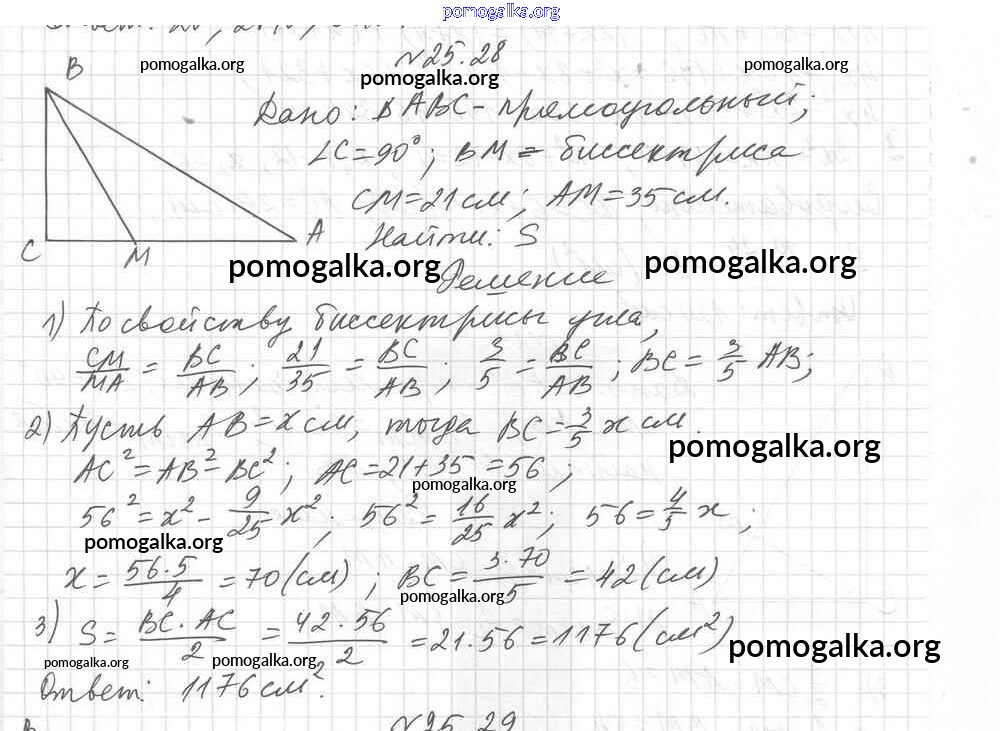 pomogalka.org
№25.28
pomogalka.org pomogalka.org pomogalka.org
B
Дано: ΔABC - прямоугольный;
∠C=90°; BM - биссектриса
CM=21 см; AM=35 см.
C M A
Найти: S
pomogalka.org pomogalka.org
Решение
1) По свойству биссектрисы угла,
CM/MA = BC/AB; 21/35 = BC/AB; 3/5 = BC/AB; BC = 3/5 AB;
2) Пусть AB = x см, тогда BC = 3/5 x см.
pomogalka.org
AC² = AB² - BC²; AC = 21+35 = 56;
pomogalka.org
56² = x² - 9/25 x²; 56² = 16/25 x²; 56 = 4/5 x;
pomogalka.org
x = 56·5/4 = 70 (см); BC = 3·70/5 = 42 (см)
pomogalka.org
3) S = BC·AC/2 = 42·56/2 = 21·56 = 1176 (см²)
pomogalka.org pomogalka.org pomogalka.org
Ответ: 1176 см².
№25.29